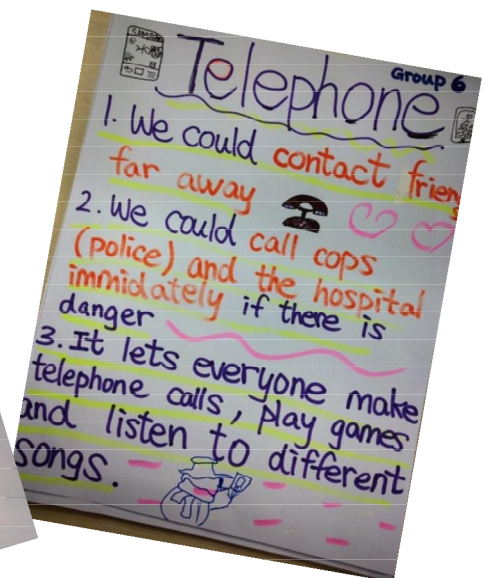 Telephone
Group 6
1. We could contact frien
far away
2. We could call cops
(police) and the hospital
immidately if there is
danger
3. It lets everyone make
telephone calls, play games
and listen to different
songs.